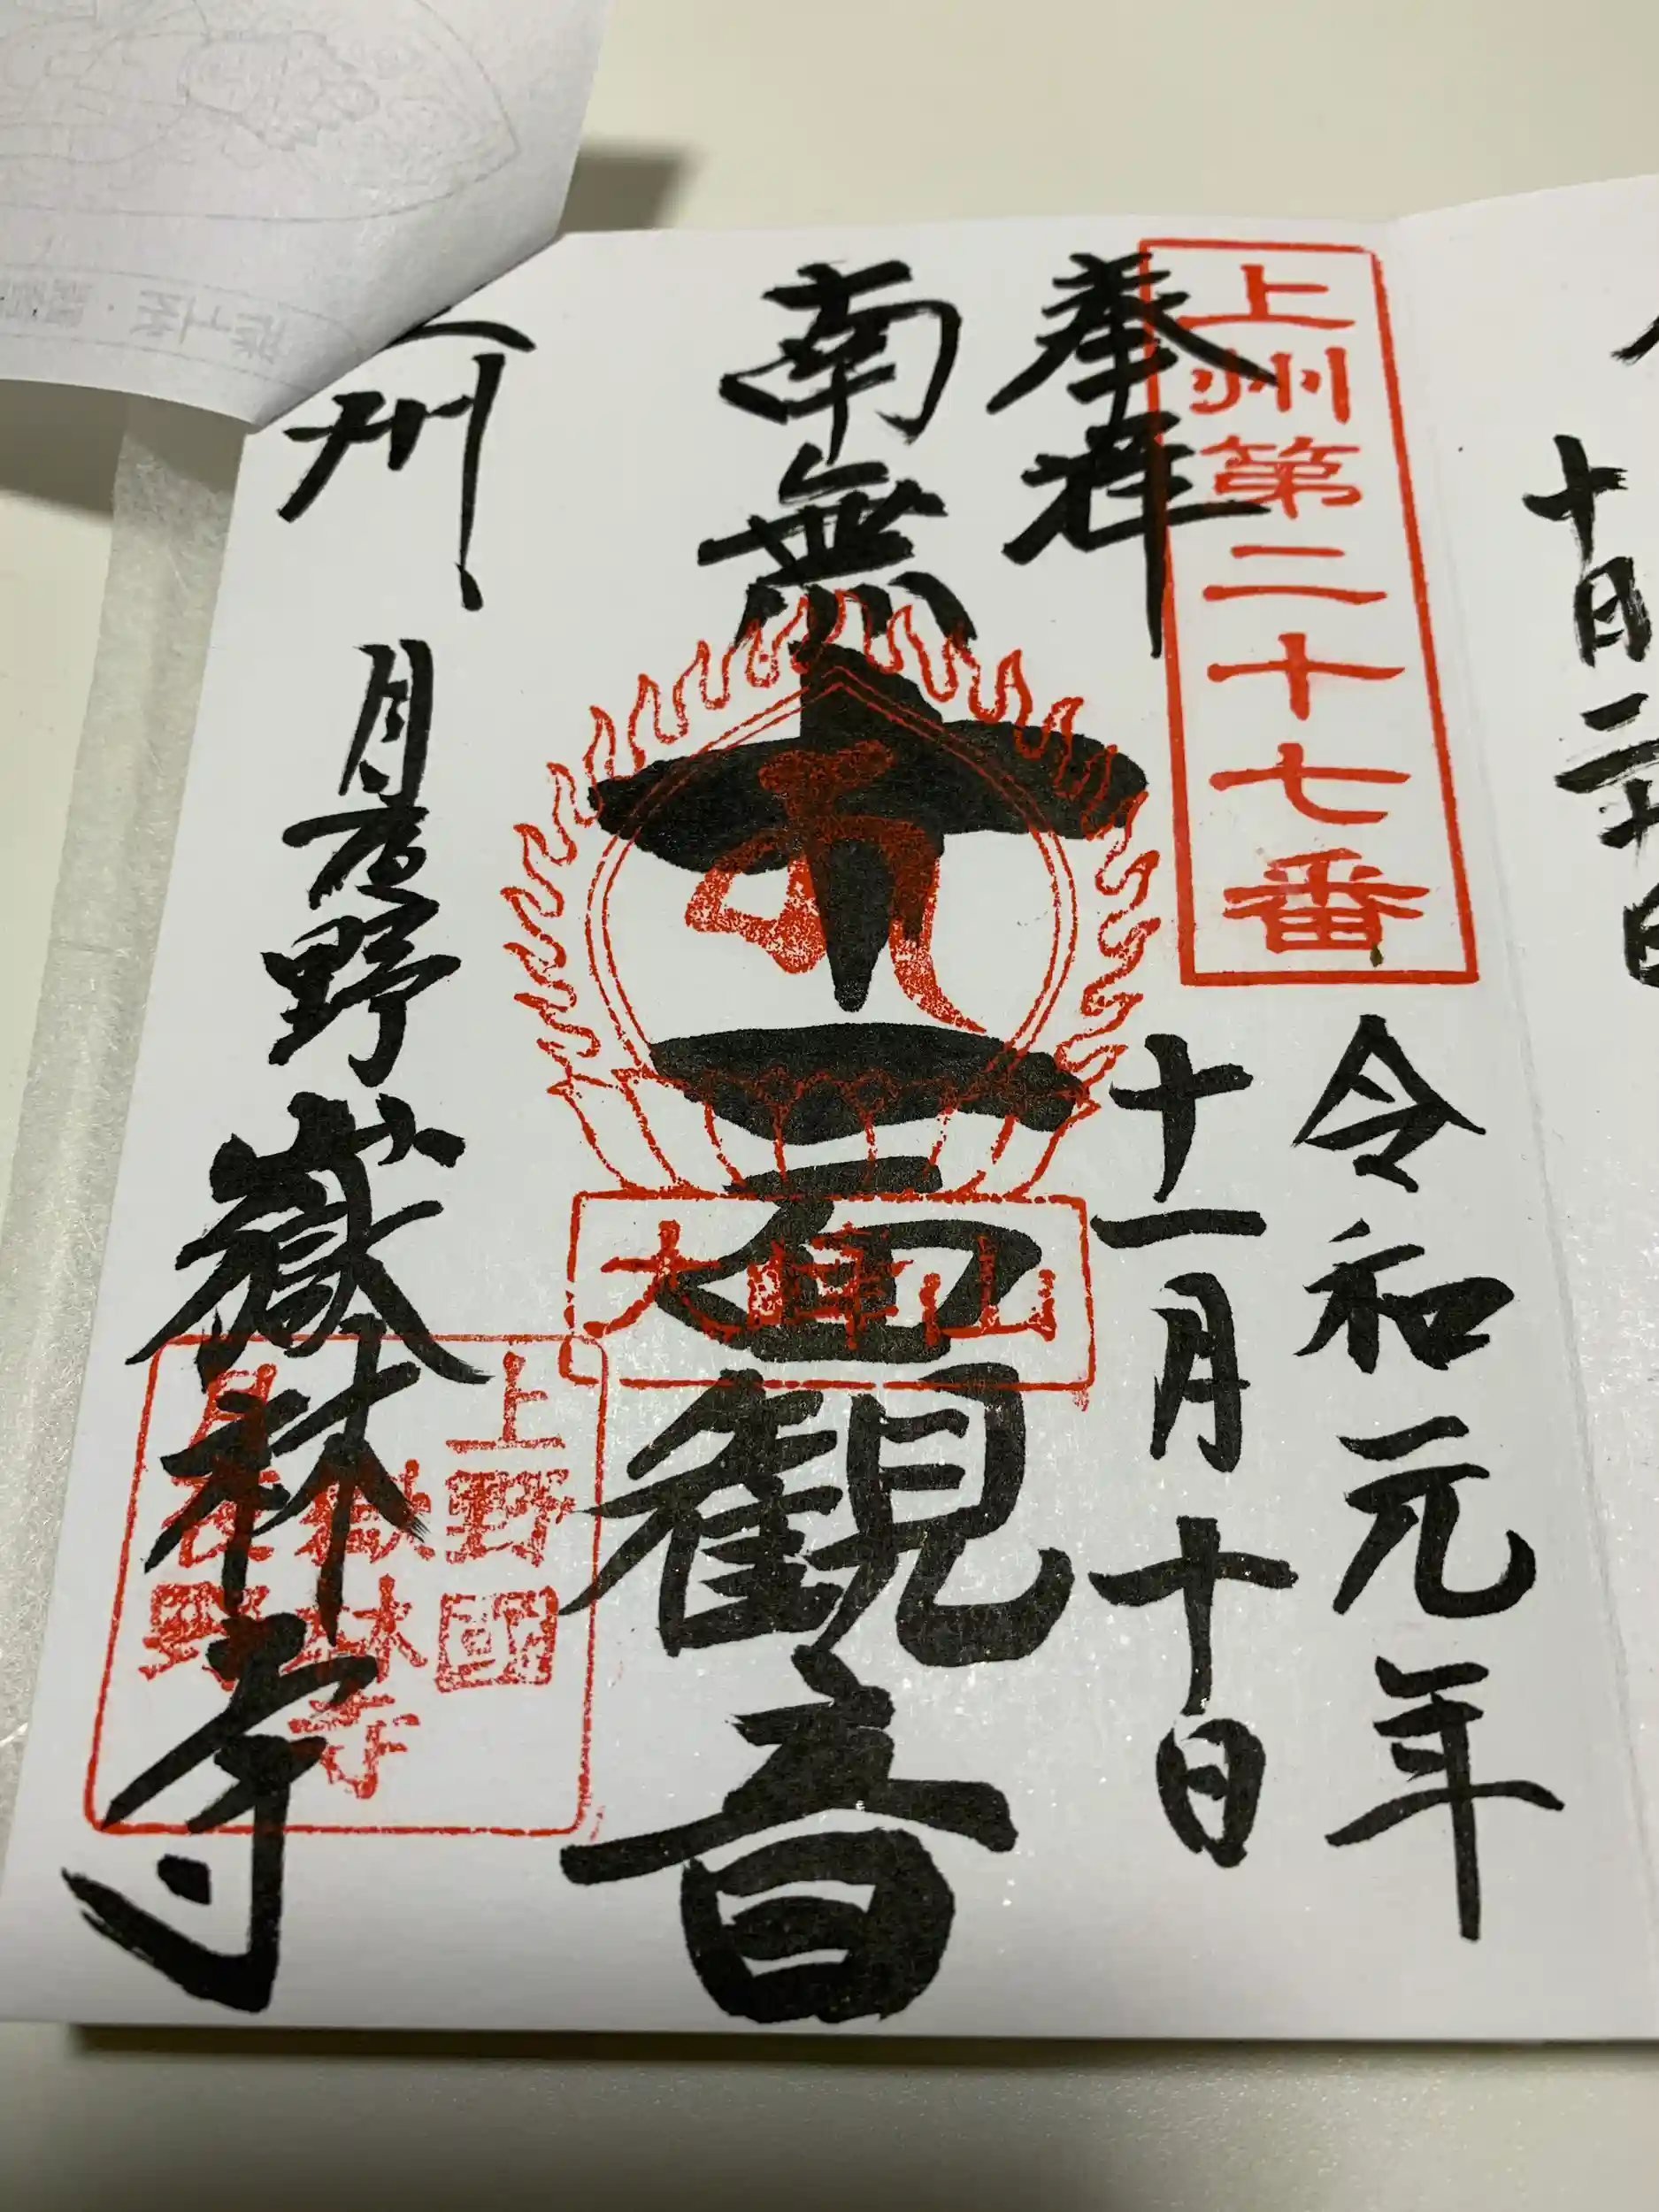 十日
二十
上州第二十七番
奉拝
令和元年
十一月十日
南無
十一面観音
大峰山
州
月夜野
嶽林寺
上野國
嶽林寺
月夜野